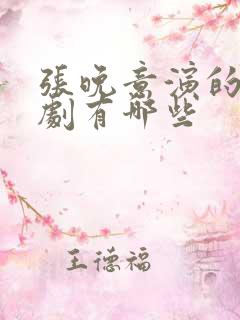 張晚意演的
劇有哪些
王德福